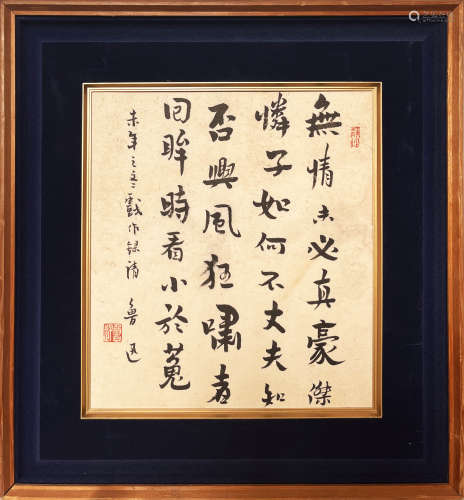 無情未必真豪傑
憐子如何不丈夫知
否興風狂嘯者
回眸時看小於菟
未年之冬戲作錄請
魯迅